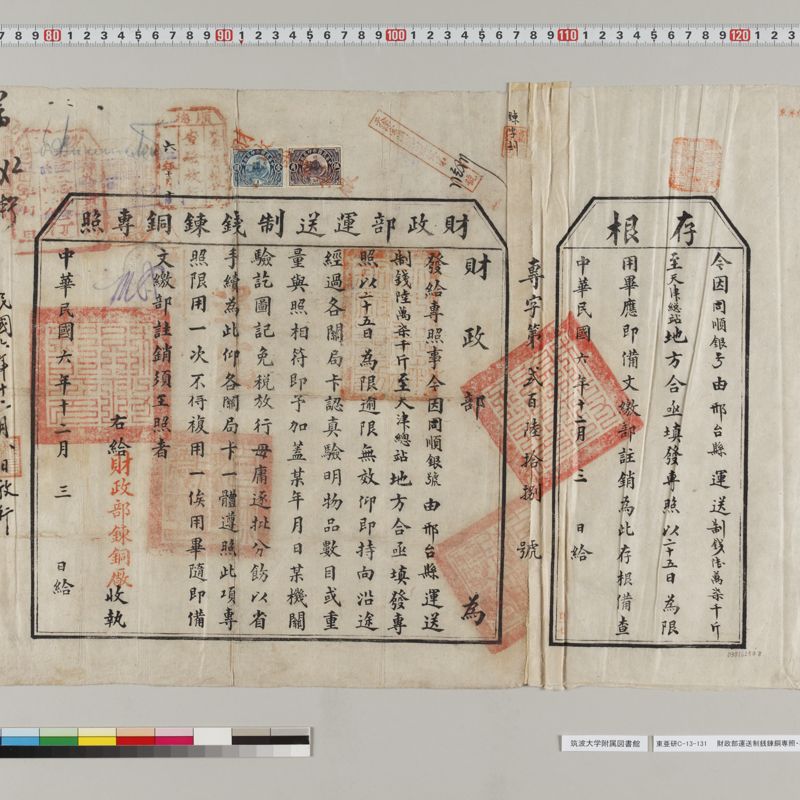 存根
令因同順銀号由邢台縣運送制錢陸萬柒千斤
至天津總站地方合亟填發專照以二十五日為限
用畢應即備文繳部註銷為此存根備查
中華民國六年十二月三日給
專字第貳百陸拾捌號
財政部運送制錢鍊銅專照
財政部為
發給專照事令因同順銀號由邢台縣運送
制錢陸萬柒千斤至天津總站地方合亟填發專
照以二十五日為限逾限無效仰即持向沿途
經過各關局卡認真驗明物品數目或重
量與照相符即予加蓋某年月日某機關
驗訖圖記免稅放行毋庸逐批分飭以省
手續為此仰各關局卡一體遵照此項專
照限用一次不得複用一俟用畢隨即備
文繳部註銷須至照者
右給財政部鍊銅廠收執
中華民國六年十二月三日給
筑波大学附属図書館
東亜研C-13-131 財政部運送制銭錬銅専照